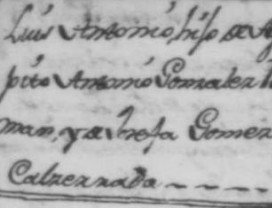 Luis Antonio hijo de Ag
pito Antonio Gonzalez
man, y de Josefa Gomez
Calzerrada